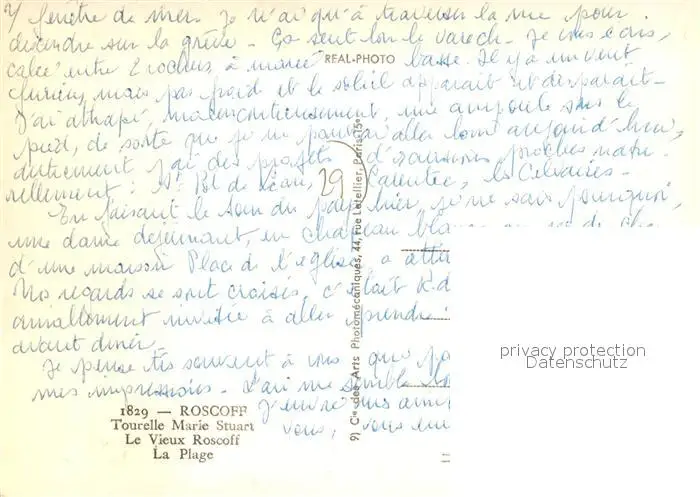 fenêtre de mer. Je n'ai qu'à traverser la rue pour
descendre sur la grève - Ça sent bon le varech - Je vous écris,
calée entre 2 rochers, à marée basse. Il y a un vent
REAL-PHOTO
furieux, mais pas froid et le soleil apparait et disparait -
J'ai attrapé, malencontreusement, une ampoule sous le
pied, de sorte que je ne pourrai aller loin aujourd'hui,
autrement j'ai des projets d'excursions proches natu-
rellement : St Pol de Léon, Carantec, les Calvaires -
29
En faisant le tour du pays hier, je ne sais pourquoi,
une dame déjeunant, en chapeau
d'une maison Place de l'église, a
Nos regards se sont croisés, c'était
amicalement invitée à aller prendre
avant dîner.
Je pense très souvent à vous
mes impressions -
vous, vous
1829 — ROSCOFF
Tourelle Marie Stuart
Le Vieux Roscoff
La Plage
9) Cie des Arts Photomécaniques, 44, rue Letellier, Paris-15e
privacy protection
Datenschutz